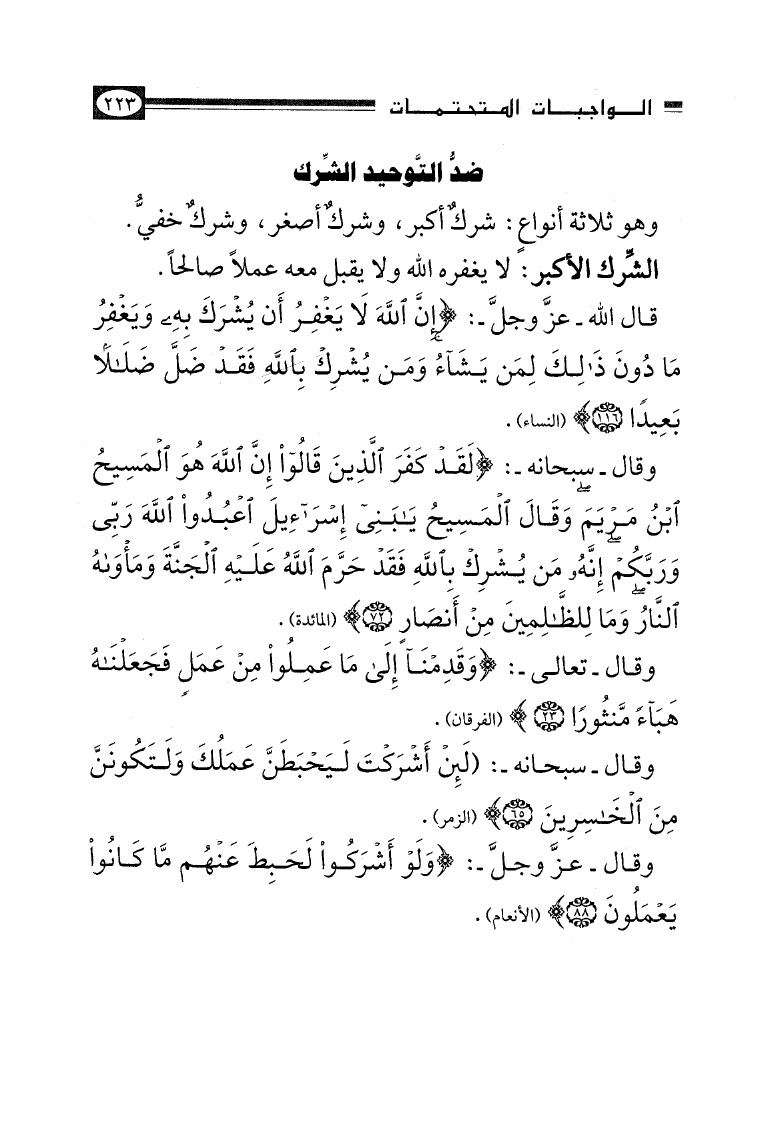 الـواجبـات المتحتمـات ٢٢٣
ضدُّ التَّوحيد الشِّرك
وهو ثلاثة أنواعٍ: شركٌ أكبر، وشركٌ أصغر، وشركٌ خفيٌّ.
الشِّرك الأكبر: لا يغفره الله ولا يقبل معه عملاً صالحاً.
قال الله ـ عزَّ وجلَّ ـ: ﴿إِنَّ ٱللَّهَ لَا يَغْفِرُ أَن يُشْرَكَ بِهِۦ وَيَغْفِرُ
مَا دُونَ ذَٰلِكَ لِمَن يَشَآءُ ۚ وَمَن يُشْرِكْ بِٱللَّهِ فَقَدْ ضَلَّ ضَلَـٰلًۢا
بَعِيدًا ١١٦﴾ (النساء).
وقال ـ سبحانه ـ: ﴿لَقَدْ كَفَرَ ٱلَّذِينَ قَالُوٓا۟ إِنَّ ٱللَّهَ هُوَ ٱلْمَسِيحُ
ٱبْنُ مَرْيَمَ ۖ وَقَالَ ٱلْمَسِيحُ يَـٰبَنِىٓ إِسْرَٰٓءِيلَ ٱعْبُدُوا۟ ٱللَّهَ رَبِّى
وَرَبَّكُمْ ۖ إِنَّهُۥ مَن يُشْرِكْ بِٱللَّهِ فَقَدْ حَرَّمَ ٱللَّهُ عَلَيْهِ ٱلْجَنَّةَ وَمَأْوَىٰهُ
ٱلنَّارُ ۖ وَمَا لِلظَّـٰلِمِينَ مِنْ أَنصَارٍ ٧٢﴾ (المائدة).
وقال ـ تعالى ـ: ﴿وَقَدِمْنَآ إِلَىٰ مَا عَمِلُوا۟ مِنْ عَمَلٍ فَجَعَلْنَـٰهُ
هَبَآءً مَّنثُورًا ٢٣﴾ (الفرقان).
وقال ـ سبحانه ـ: (لَئِنْ أَشْرَكْتَ لَيَحْبَطَنَّ عَمَلُكَ وَلَتَكُونَنَّ
مِنَ ٱلْخَـٰسِرِينَ ٦٥﴾ (الزمر).
وقال ـ عزَّ وجلَّ ـ: ﴿وَلَوْ أَشْرَكُوا۟ لَحَبِطَ عَنْهُم مَّا كَانُوا۟
يَعْمَلُونَ ٨٨﴾ (الأنعام).